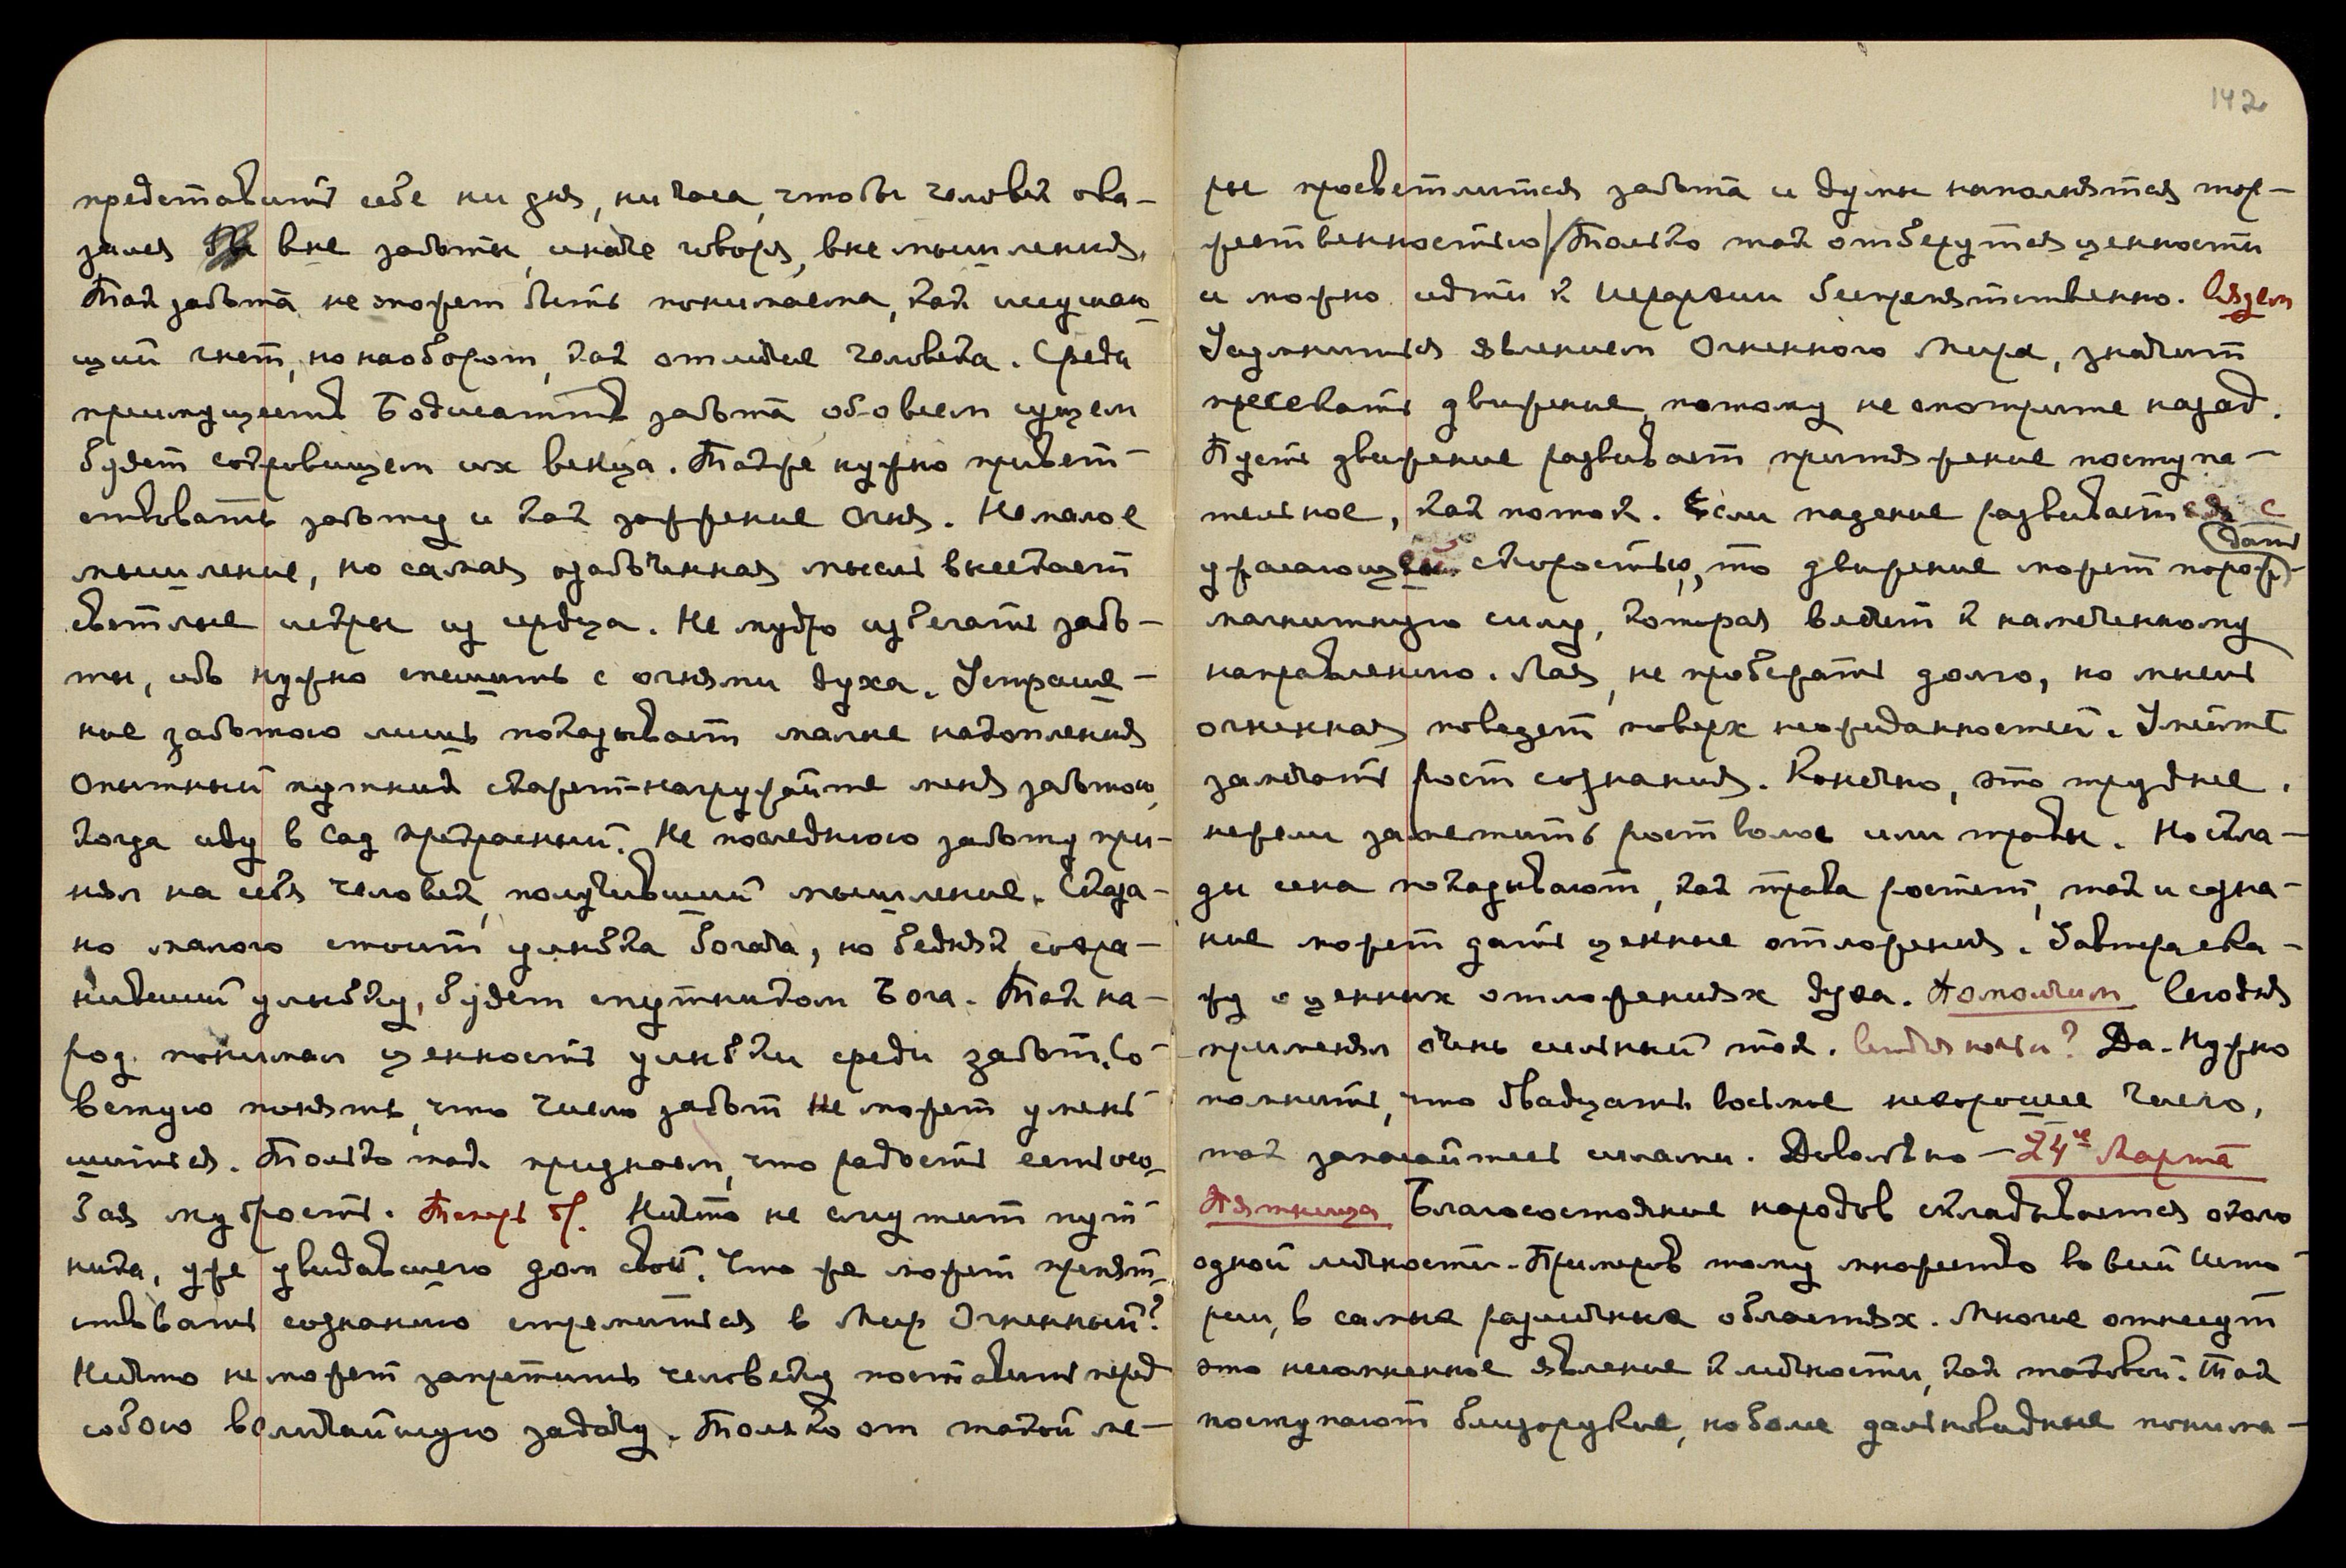 представить себе ни дня, ни часа, чтобы человек ока-
зался вне заботы, иначе говоря, вне мышления.
Так забота не может быть понимаема, как иссушаю
щий гнет, но наоборот, как отличие человека. Среди
преимуществ Бодисатт забота обо всем сущем
будет сокровищем их венца. Также нужно привет-
ствовать заботу и как зарожение Огня. Не малое
мышление, но самая озабоченная мысль высекает
светлые искры из сердца. Не мудро избегать забо-
ты, ибо нужно спешить с огнями духа. Устраше-
ние заботою лишь показывает малые накопления
Опытный путник скажет-нагружайте меня заботою,
когда иду в Сад прекрасный. Не последнюю заботу при-
нял на себя человек, получивший мышление. Сказа-
но малого стоит улыбка богача, но бедняк, сохра-
нивший улыбку, будет спутником Бога. Так на-
род понимал ценность улыбки среди забот. Со-
ветую понять, что число забот не может умень
шиться. Только так признаем, что радость есть осо-
бая мудрость. Теперь др. Ничто не смутит пут
ника, уже увидавшего дом свой. Что же может препят-
ствовать сознанию стремиться в Мир Огненный?
Ничто не может запретить человеку поставить перед
собою величайшую задачу. Только от такой ме-
142
ры просветлится забота и думы наполнятся тор-
жественностью/Только так отберутся ценности
и можно идти к Иерархии беспрепятственно. Скажем
Усумниться явлением Огненного Мира, значит
пресекать движение, потому не смотрите назад.
Пусть движение развивает притяжение поступа-
тельное, как поток. Если падение развивается с
ужасающей скоростью, то движение может порож-
дать
магнитную силу, которая влечет к намеченному
направлению. Лая, не пробежать долго, но мысль
огненная поведет поверх неожиданностей. Умейте
замечать рост сознания. Конечно, это труднее.
нежели заметить рост волос или травы. Но скла-
ды сена показывают, как трава растет, так и созна-
ние может дать ценные отложения. Завтра ска-
жу о ценных отложениях духа. Помолчим Сегодня
применял очень сильный ток. Да. Нужно
помнить, что двадцать восьмое нехорошее число,
так запасайтесь силами. Довольно - 24ое Марта
Пятница Благосостояние народов складывается около
одной личности. Примеров тому множество во всей Исто
рии, в самых различных областях. Многие отнесут
это несомненное явление к личности, как таковой. Так
поступают близорукие, но более дальновидные понима-